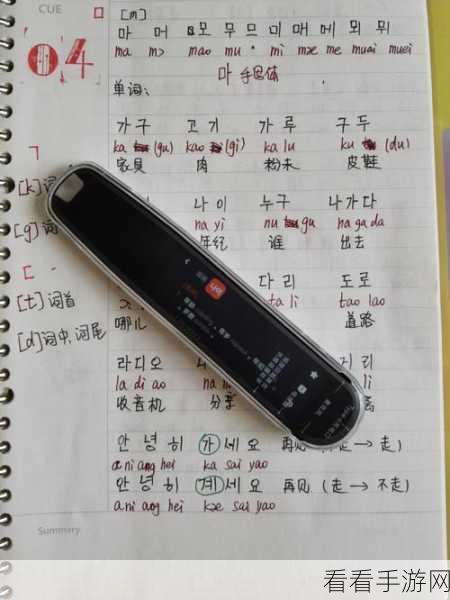 CUE
04
[m]
마 머 모 무 므 미 매 에 뫼 뮈
ma mɔ mao mu · mi mæ me muai muei
마 手写体
单词:
가구 고기 가루 구두
ka (gu) kao (gi) ka lu ku (du)
家具 肉 粉末 皮鞋
[k] 词
나이 누구 나가다
na yi nu gu na ga da
[g] 词
年纪 谁 出去
다리 도로
[t] 词首
ta li tao lao
哪儿 道路
[d] 词中,词尾
라디오 리
la di ao na
收音机 分享
안녕히 가세요 再见 → 走)
a ni ang hei ka sai yao
안녕히 계세요 再见 (走 → 不走)
a ni ang hei kæ sai yao
Summary
看看手游网